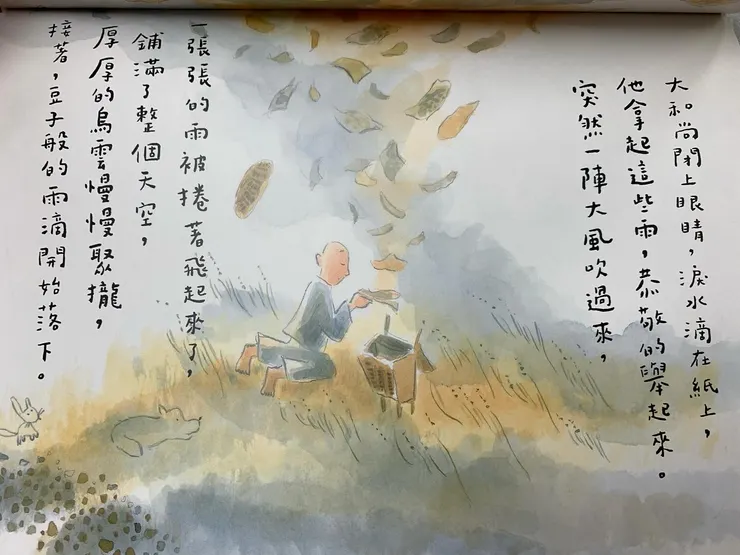 大和尚閉上眼睛，淚水滴在紙上，
他拿起這些雨，恭敬的舉起來。
突然一陣大風吹過來，
一張張的雨被捲著飛起來了，
鋪滿了整個天空，
厚厚的烏雲慢慢聚攏，
接著，豆子般的雨滴開始落下。